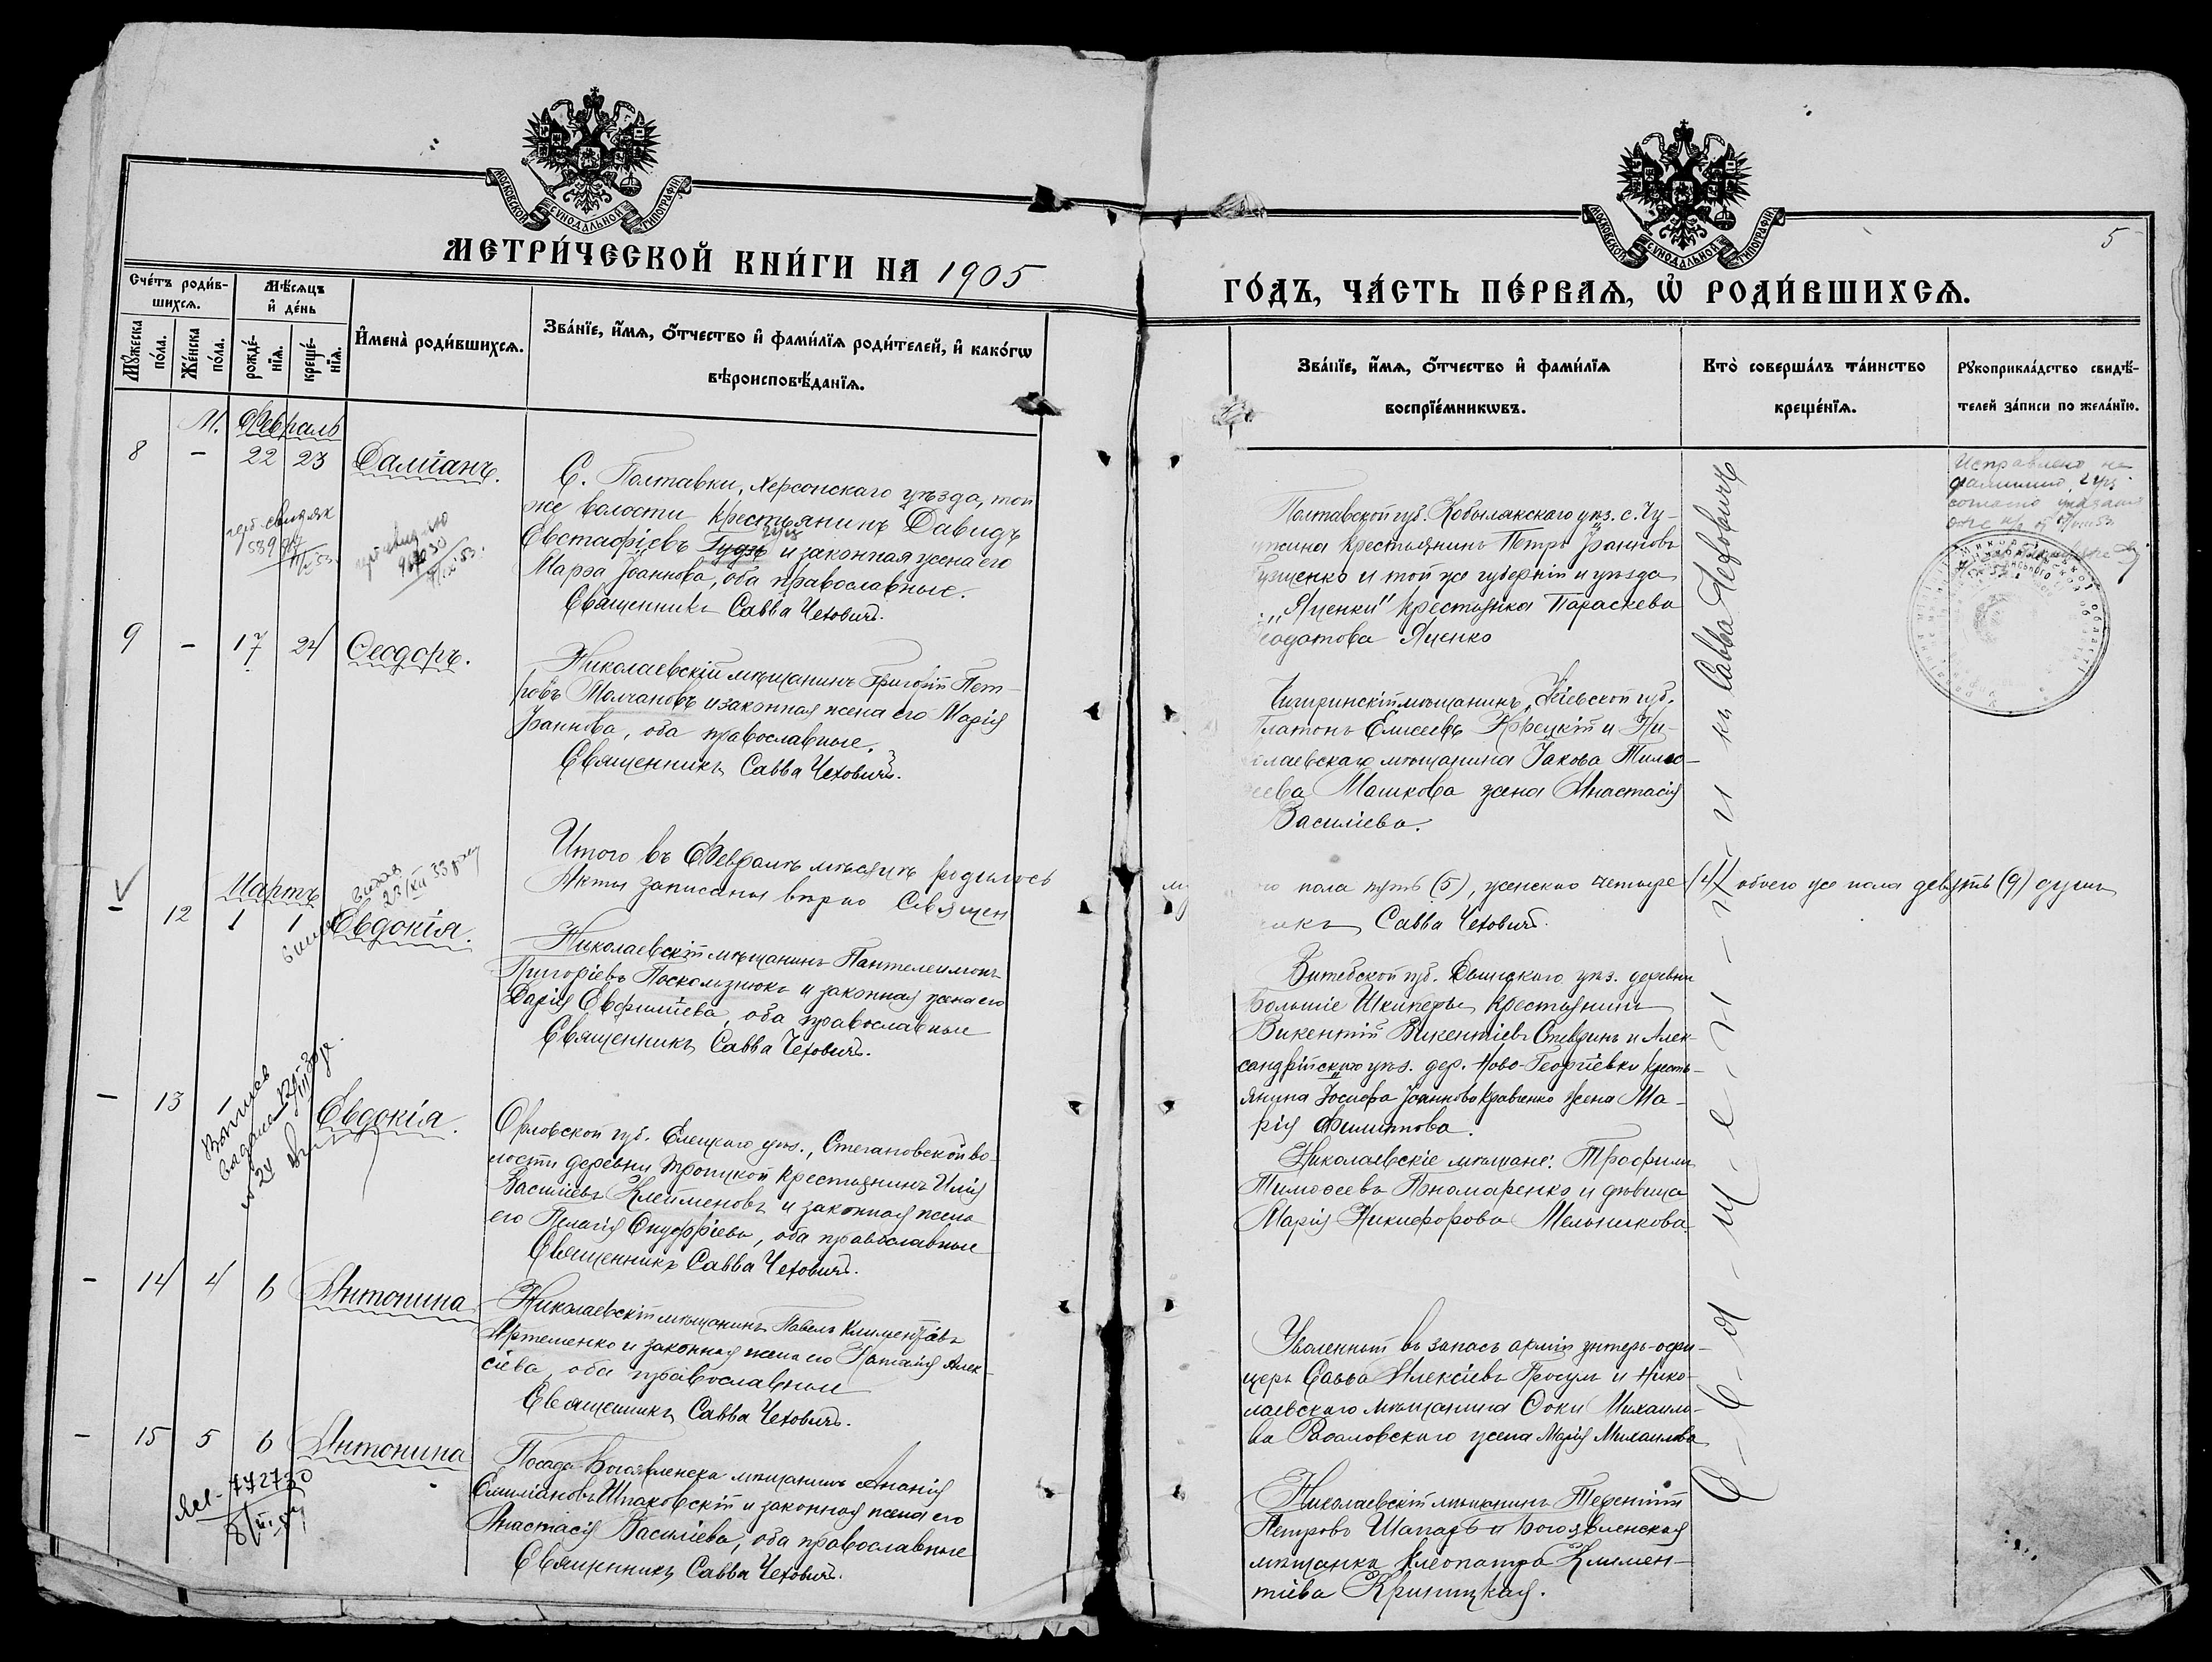 МОСКОВСКОЙ СѴНОДАЛЬНОЙ ТИПОГРАФІИ
МЕТРИ́ЧЕСКОЙ КНИ́ГИ НА 1905
Сче́тъ роди́в-
шихсѧ.
Мѣ́сѧцъ
и҆ де́нь
И҆мена̀ роди́вшихсѧ.
Зва́нїе, и҆́мѧ, ѻ҆́тчество и҆ фами́лїѧ роди́телей, и҆ како́гѡ
вѣроисповѣ́данїѧ.
Мꙋ́жеска
по́ла.
Же́нска
по́ла.
рожде́-
нїѧ.
креще́-
нїѧ.
М. Февраль
8 - 22 23 Даміанъ.
С. Полтавки, Херсонскаго уѣзда, той
же волости крестьянинъ Давидъ
Евстафіевъ Гудзь и законная жена его
Марѳа Іоаннова, оба православные.
Священникъ Савва Чеховичъ.
9 - 17 24 Ѳеодоръ.
Николаевскій мѣщанинъ Григорій Пет-
ровъ Молчановъ и законная жена его Марія
Іоаннова, оба православные.
Священникъ Савва Чеховичъ.
Итого въ Февралѣ мѣсяцѣ родилось
Акты записаны вѣрно Священ
Мартъ
- 12 1 1 Евдокія.
Николаевскій мѣщанинъ Пантелеимонъ
Григоріевъ Поскользнюкъ и законная жена его
Дарія Евфиміева, оба православные
Священникъ Савва Чеховичъ.
- 13 1 Евдокія.
Орловской губ. Елецкаго уѣз., Стегановской во-
лости деревни Троицкой крестьянинъ Илія
Василіевъ Клейменовъ и законная жена
его Пелагія Онуфріева, оба православные
Священникъ Савва Чеховичъ.
- 14 4 6 Антонина
Николаевскій мѣщанинъ Павелъ Климентовъ
Артеменко и законная жена его Наталія Алек-
сіева, оба православные
Священникъ Савва Чеховичъ.
- 15 5 6 Антонина
Посада Богоявленска мѣщанинъ Ананія
Емиліановъ Шпаковскій и законная жена его
Анастасія Василіева, оба православные
Священникъ Савва Чеховичъ.
МОСКОВСКОЙ СѴНОДАЛЬНОЙ ТИПОГРАФІИ
5
ГО́ДЪ, ЧА́СТЬ ПЕ́РВАѦ, Ѽ РОДИ́ВШИХСѦ.
Зва́нїе, и҆́мѧ, ѻ҆́тчество и҆ фами́лїѧ
воспрїе́мникѡвъ.
Кто̀ соверша́лъ та́инство
креще́нїѧ.
Рꙋкоприкла́дство свидѣ́-
телей за́писи по жела́нїю.
Полтавской губ. Кобылякскаго уѣз. с. Чу-
крестьянинъ Петръ Іоанновъ
и той же губерніи и уѣзда
"Яценки" крестьянка Параскева
Яценко
Чигиринскій мѣщанинъ, Кіевской губ.
Платонъ Елисеевъ Корецкій и Ни-
лаевскаго мѣщанина Іакова Тимо-
ѳеева Машкова жена Анастасія
Василіева.
пола пять (5), женскаго четыре (4) обоего же пола девять (9) душъ
Савва Чеховичъ.
Витебской губ. уѣз. деревни
Большіе крестьянинъ
Викентій Викентіевъ и Алек-
сандрійскаго уѣз. дер. Ново-Георгіевки кресть-
янина Іосифа Іоаннова Кравченко жена Ма-
рія Филиппова.
Николаевскіе мѣщане: Трофимъ
Тимоѳеевъ Пономаренко и дѣвица
Марія Никифорова Мельникова.
Уволенный въ запасъ арміи унтеръ-офи-
церъ Савва Алексіевъ и Нико-
лаевскаго мѣщанина Ѳоки Михаило-
ва жена Марія Михаилова
Николаевскій мѣщанинъ Терентій
Петровъ Шапарь и Богоявленская
мѣщанка Клеопатра Климен-
тіева Криницкая.
С-в-я-щ-е-н-н-и-къ Савва Чеховичъ